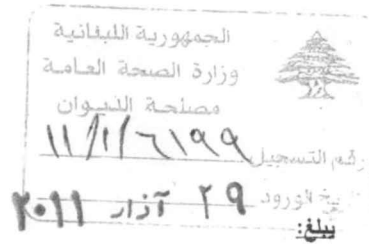 الجمهورية اللبنانية
وزارة الصحة العامة
مصلحة الديوان
رقم التسجيل ١١/١/٦١٩٩
تاريخ الورود ٢٩ آذار ٢٠١١
يبلغ: